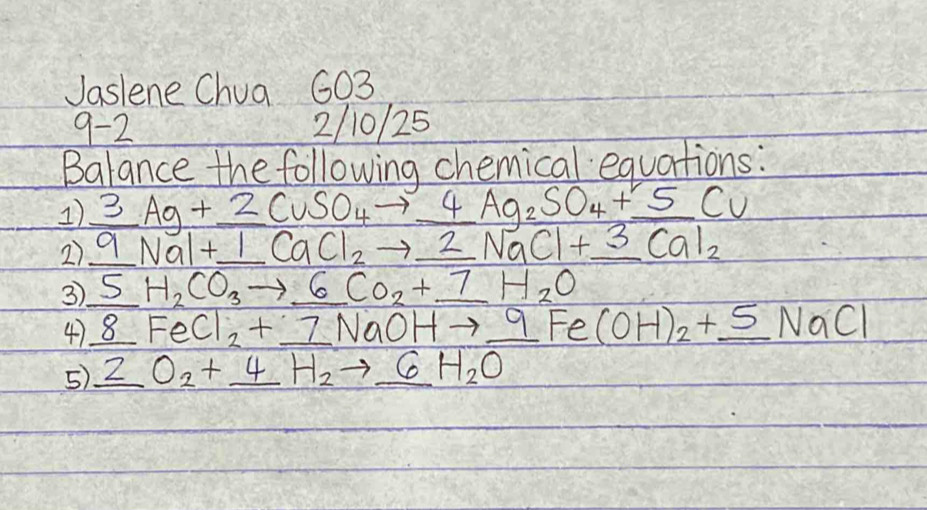 Jaslene Chua G03
9-2 2/10/25
Balance the following chemical equations:
1) 3 Ag + 2 CuSO₄ → 4 Ag₂SO₄ + 5 Cu
2) 9 NaI + 1 CaCl₂ → 2 NaCl + 3 CaI₂
3) 5 H₂CO₃ → 6 Co₂ + 7 H₂O
4) 8 FeCl₂ + 7 NaOH → 9 Fe(OH)₂ + 5 NaCl
5) 2 O₂ + 4 H₂ → 6 H₂O